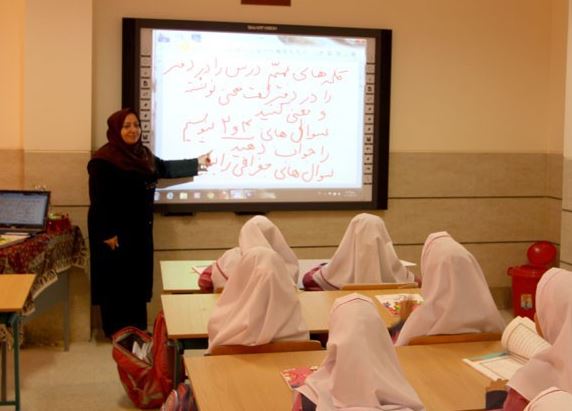 کلمه‌های مهمّ درس را در دفتر
را در دفتر لغت معنی نوشته
و معنی کنید
سوال های ۴ و ۲ بنویسیم
را جواب دهید
سوال های جغرافی را